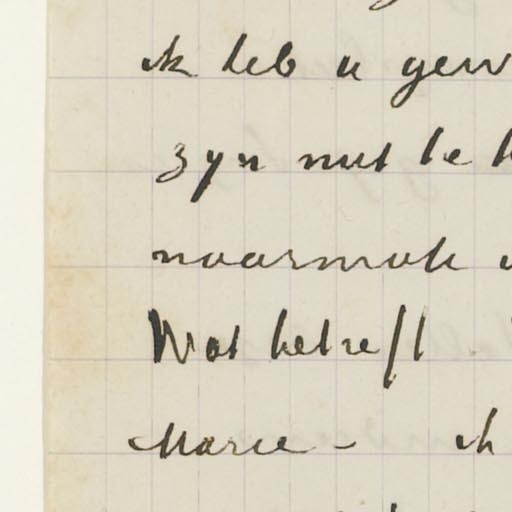 ik heb u gew
zyn met te
naarmate
Wat betreft
Marie - ik